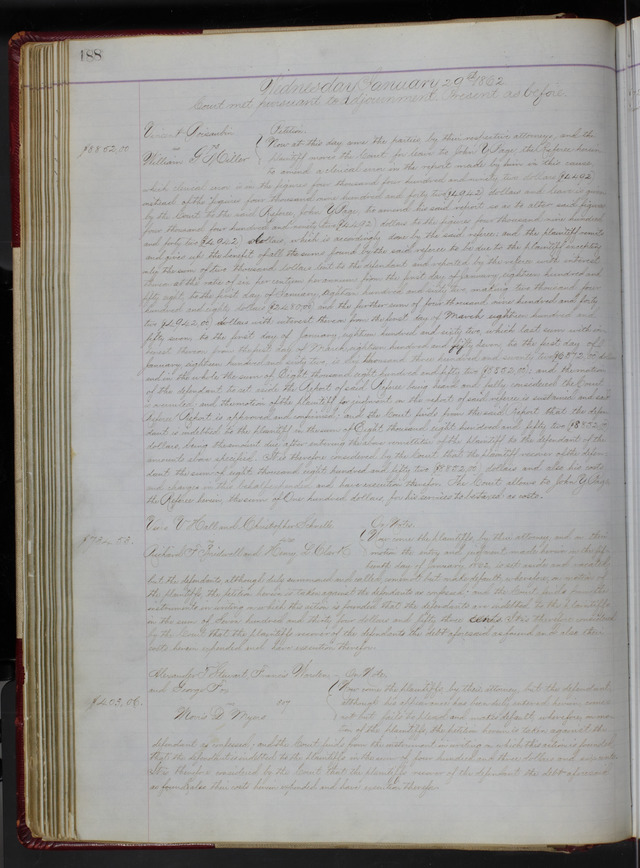 188
Wednesday January 29th 1862
Court met pursuant to Adjournment Present as before.
Petition.
$8852.00
William G. Miller
Now at this day come the parties by their respective attorneys, and the
plaintiff moves the Court for leave to John Y. Page the Referee herein
to amend a clerical error in the report made by him in this cause,
which clerical error is in the figures four thousand four hundred and ninety two dollars ($4492)
instead of the figures four thousand nine hundred and forty two ($4942) dollars and leave is given
by the Court to the said Referee, John Y. Page to amend his said report so as to alter said figures
four thousand four hundred and ninety two ($4492) dollars to the figures four thousand nine hundred
and forty two ($4942) dollars, which is accordingly done by the said referee, and the plaintiff remits
and gives up the benefit of all the sums found by the said referee to be due to the plaintiff excepting
only the sum of two thousand dollars lent to the defendant and reported by the referee with interest
thereon at the rate of six per centum per annum from the first day of January eighteen hundred and
fifty eight, to the first day of January, eighteen hundred and sixty two making two thousand four
hundred and eighty dollars ($2480.00) and the further sum of four thousand nine hundred and forty
two ($4942.00) dollars with interest thereon from the first day of March eighteen hundred and
fifty seven to the first day of January eighteen hundred and sixty two, which last sum with in-
terest thereon from the first day of March eighteen hundred and fifty seven, to the first day of
January eighteen hundred and sixty two is six thousand three hundred and seventy two ($6372.00) dollars
and on the whole the sum of Eight thousand eight hundred and fifty two ($8852.00) and the motion
of the defendant to set aside the Report of said Referee being heard and fully considered the Court
is overruled and the motion of the plaintiff for judgment on the report of said referee is sustained and said
Referees Report is approved and confirmed, and the Court finds from the said report that the defen-
dant is indebted to the plaintiff in the sum of Eight thousand eight hundred and fifty two ($8852.00)
dollars being the amount due after entering the above remittitur of the plaintiff to the defendant of the
amounts above specified. It is therefore considered by the Court that the plaintiff recover of the defen-
dant the sum of eight thousand eight hundred and fifty two ($8852.00) dollars and also his costs
and charges in this behalf expended, and have execution therefor. The Court allows to John Y. Page
the Referee herein the sum of One hundred dollars, for his services to be taxed as costs.
V. Hall and Christopher
On Note.
Richard F. and Henry D. Clark
Now come the plaintiffs by their attorney and on their
motion the entry and judgment made herein on the
day of January 1862 is set aside and vacated
but the defendants although duly summoned and called come not but make default, wherefore, on motion of
the plaintiffs the petition herein is taken against the defendants as confessed: and the Court finds from the
instruments in writing on which this action is founded that the defendants are indebted to the plaintiffs
in the sum of seven hundred and thirty four dollars and fifty three cents. It is therefore considered
by the Court that the plaintiffs recover of the defendants the debt aforesaid as found and also their
costs herein expended and have execution therefor.
Alexander T. Stewart, Francis Warden
and George Fox
On Note.
$403.06.
Moris D. Myers
Now come the plaintiffs by their attorney but the defendant
although his appearance has been duly entered herein, comes
not but fails to plead and makes default wherefore, on mo-
tion of the plaintiffs, the petition herein is taken against the
defendant as confessed: and the Court finds from the instrument in writing on which this action is founded
that the defendant is indebted to the plaintiffs in the sum of four hundred and three dollars and six cents
It is therefore considered by the Court that the plaintiffs recover of the defendant the debt aforesaid
as found, also their costs herein expended and have execution therefor.